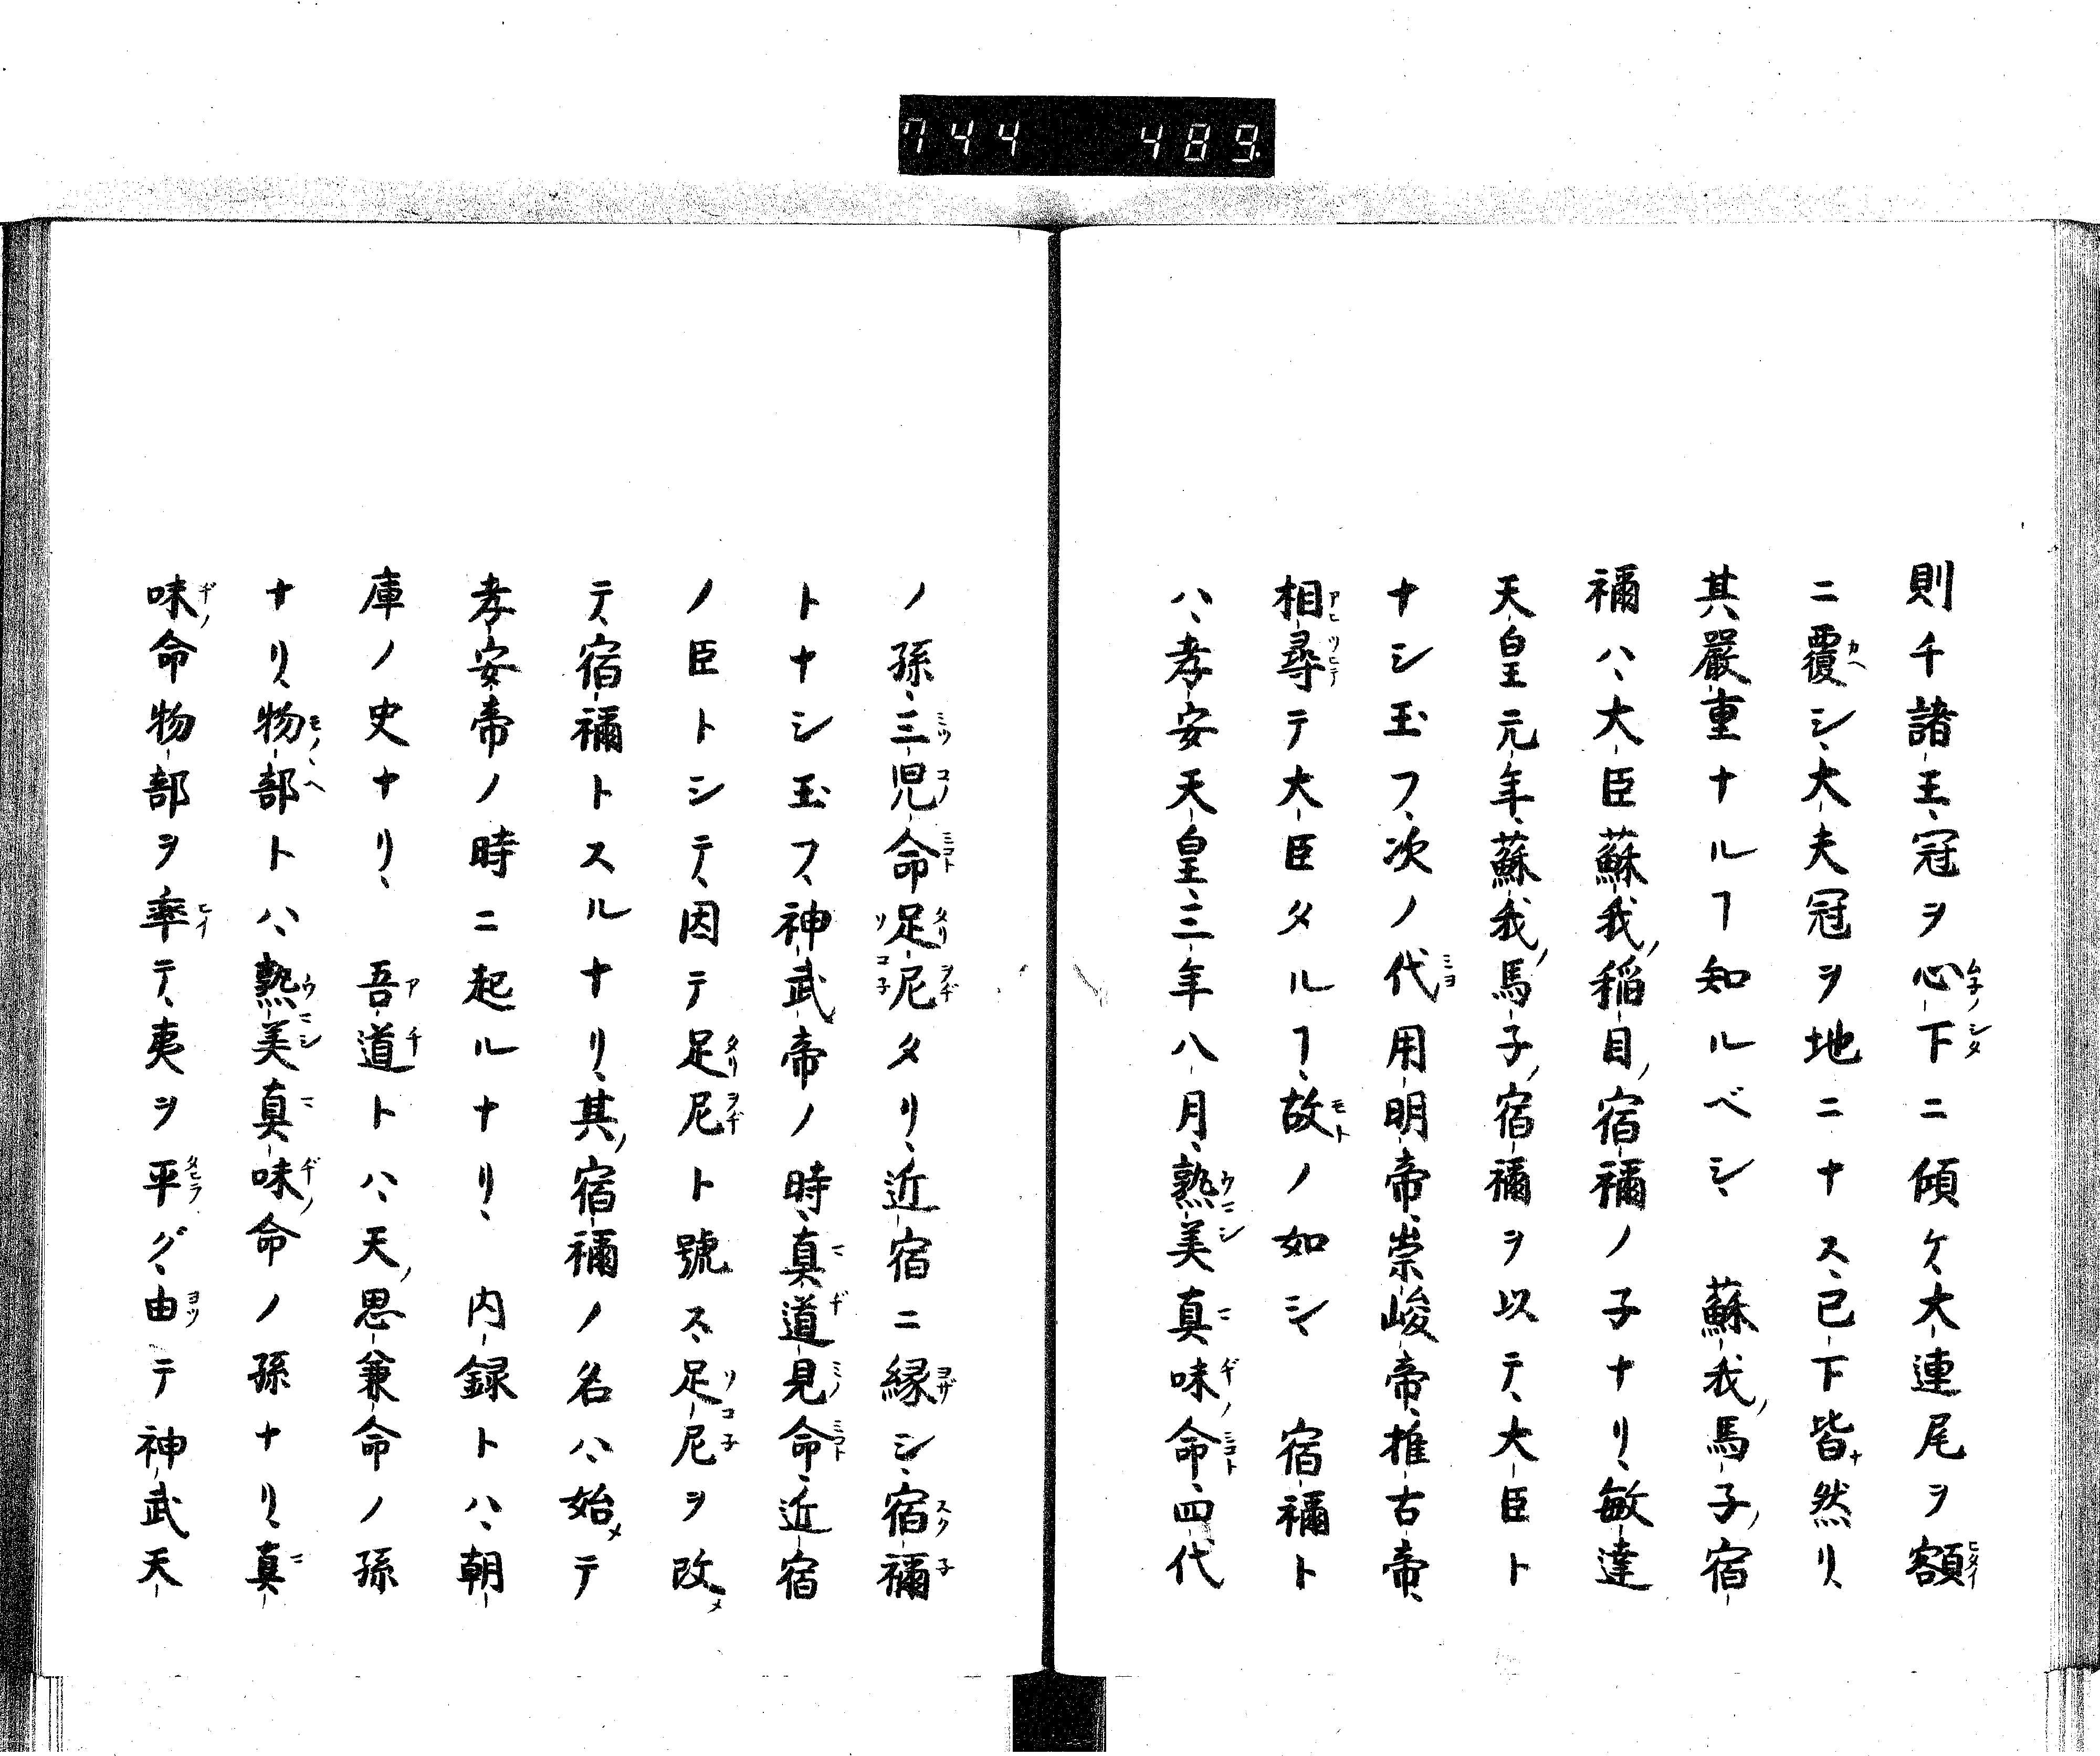 744 489
則千諸王冠ヲ心下ニ傾ケ、大連尾ヲ額
ニ覆シ、大夫冠ヲ地ニナス、已下皆然リ、
其嚴重ナルヿ知ルベシ、蘇我馬子宿
禰ハ、大臣蘇我稲目宿禰ノ子ナリ、敏達
天皇元年、蘇我馬子宿禰ヲ以テ、大臣ト
ナシ玉フ、次ノ代用明帝、崇峻帝、推古帝、
相尋テ大臣タルヿ、故ノ如シ、宿禰ト
ハ、孝安天皇、三年八月、熟美真味命、四代
ノ孫、三児命足尼タリ、近宿ニ縁シ、宿禰
トナシ玉フ、神武帝ノ時、真道見命、近宿
ノ臣トシテ、因テ足尼ト號ス、足尼ヲ改メ
テ、宿禰トスルナリ、其宿禰ノ名ハ、始メテ
孝安帝ノ時ニ起ルナリ、内録トハ、朝
庫ノ史ナリ、吾道トハ、天思兼命ノ孫
ナリ、物部トハ、熟美真味命ノ孫ナリ、真
味命物部ヲ率テ、夷ヲ平グ、由テ神武天